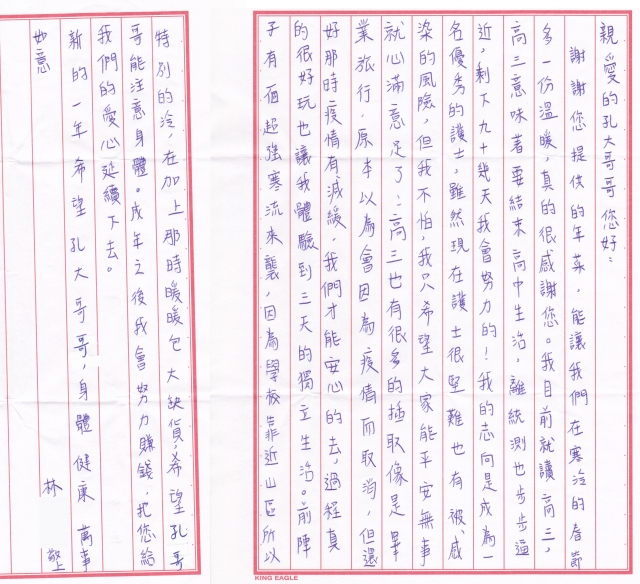 親愛的孔大哥哥您好：
謝謝您提供的年菜，能讓我們在寒冷的春節
多一份溫暖，真的很感謝您。我目前就讀高三，
高三意味著要結束高中生活，離統測也步步逼
近，剩下九十幾天我會努力的！我的志向是成為一
名優秀的護士，雖然現在護士很堅難也有被感
染的風險，但我不怕，我只希望大家能平安無事
就心滿意足了；高三也有很多的拯取像是畢
業旅行，原本以為會因為疫情而取消，但還
好那時疫情有減緩，我們才能安心的去，過程真
的很好玩也讓我體驗到三天的獨立生活。前陣
子有個超強寒流來襲，因為學校靠近山區所以
特別的冷，在加上那時暖暖包大缺貨，希望孔哥
哥能注意身體。成年之後我會努力賺錢，把您給
我們的愛心延續下去。
新的一年希望孔大哥哥，身體健康萬事
妙意
林 敬
KING EAGLE